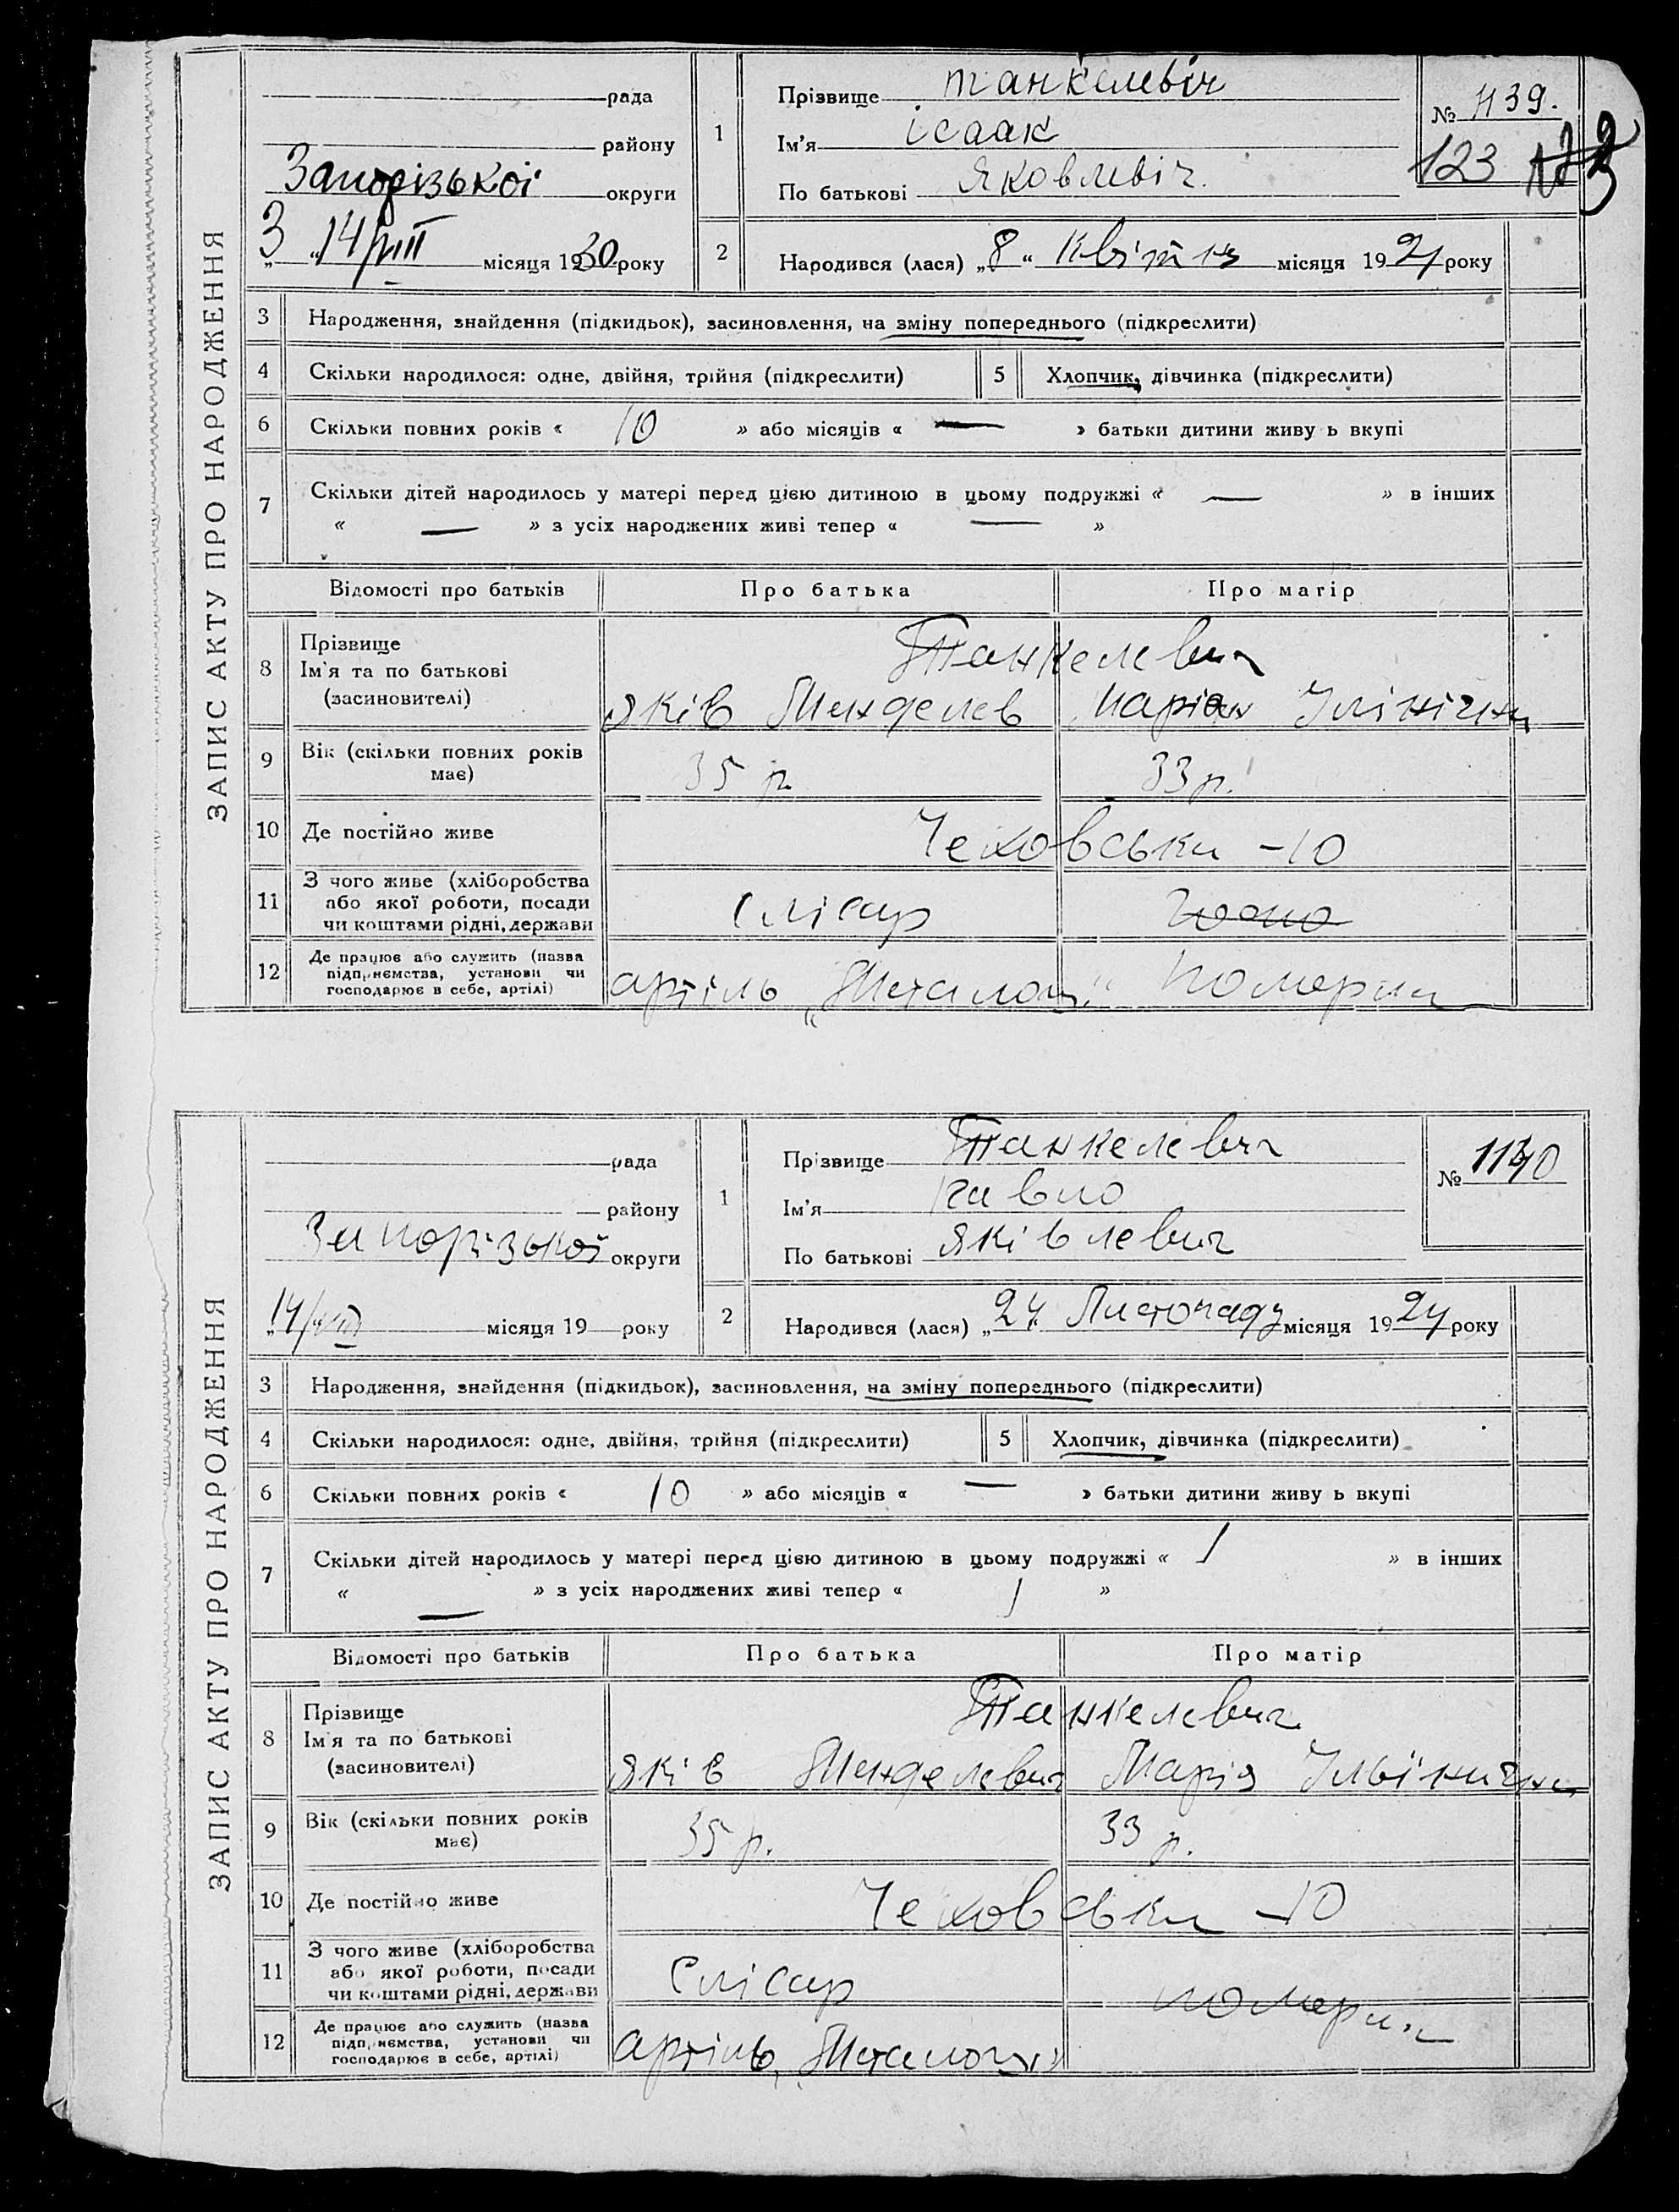 ЗАПИС АКТУ ПРО НАРОДЖЕННЯ
рада
району
Запорізької округи
14/VIII місяця 1930 року
1
Прізвище Танкелевіч
Ім'я ісаак
По батькові Яковлевіч.
№ 1139.
123
2
Народився (лася) „8“ Квітня місяця 1921 року
3 Народження, знайдення (підкидьок), засиновлення, на зміну попереднього (підкреслити)
4 Скільки народилося: одне, двійня, трійня (підкреслити)
5 Хлопчик, дівчинка (підкреслити)
6 Скільки повних років « 10 » або місяців « — » батьки дитини живу ь вкупі
7 Скільки дітей народилось у матері перед цією дитиною в цьому подружжі « — » в інших
« — » з усіх народжених живі тепер « — »
Відомості про батьків Про батька Про матір
8 Прізвище
Ім'я та по батькові
(засиновителі)
Танкелевич
Яків Менделев Марія Ілінічна
9 Вік (скільки повних років
має)
35 р. 33 р.
10 Де постійно живе Чеховська - 10
11 З чого живе (хліборобства
або якої роботи, посади
чи коштами рідні, держави
Слісар
12 Де працює або служить (назва
підприємства, установи чи
господарює в себе, артілі)
артіль Померла
ЗАПИС АКТУ ПРО НАРОДЖЕННЯ
рада
району
Запорізької округи
„14/VIII місяця 19 — року
1
Прізвище Танкелевич
Ім'я Павло
По батькові Яківлевич
№ 1140
2
Народився (лася) „24 Листопаду місяця 1924 року
3 Народження, знайдення (підкидьок), засиновлення, на зміну попереднього (підкреслити)
4 Скільки народилося: одне, двійня, трійня (підкреслити)
5 Хлопчик, дівчинка (підкреслити)
6 Скільки повних років « 10 » або місяців « — » батьки дитини живу ь вкупі
7 Скільки дітей народилось у матері перед цією дитиною в цьому подружжі « 1 » в інших
« — » з усіх народжених живі тепер « 1 »
Відомості про батьків Про батька Про матір
8 Прізвище
Ім'я та по батькові
(засиновителі)
Танкелевич
Яків Менделевич Марія Ільїнична
9 Вік (скільки повних років
має)
35 р. 33 р.
10 Де постійно живе Чеховська - 10
11 З чого живе (хліборобства
або якої роботи, посади
чи коштами рідні, держави
Слісар померла
12 Де працює або служить (назва
підприємства, установи чи
господарює в себе, артілі)
артіль